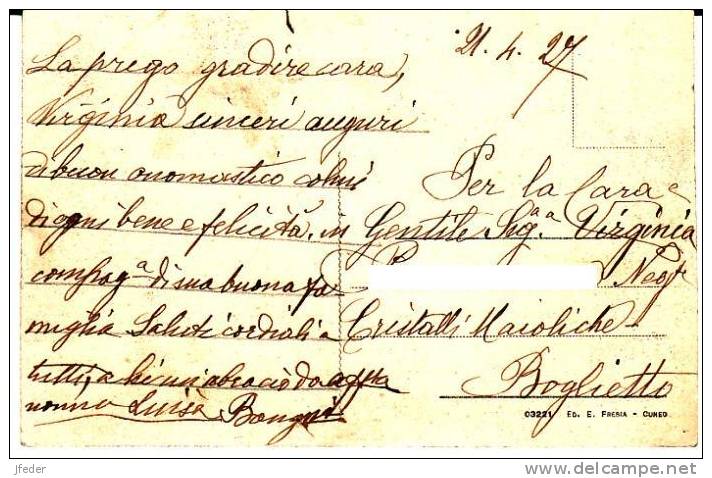 21. 4. 27
La prego gradire cara,
Virginia sinceri auguri
di buon onomastico colmi
di ogni bene e felicità. in
compag.a di sua buona fa
miglia Saluti cordiali a
tutti, a lei un abracio da aff.ma
nonna Luisa
Per la Cara e
Gentile Sig.a Virginia
Negt
Cristalli Maioliche
Boglietto
03221 ED. E. FRESIA - CUNEO
jfeder
delcampe.net